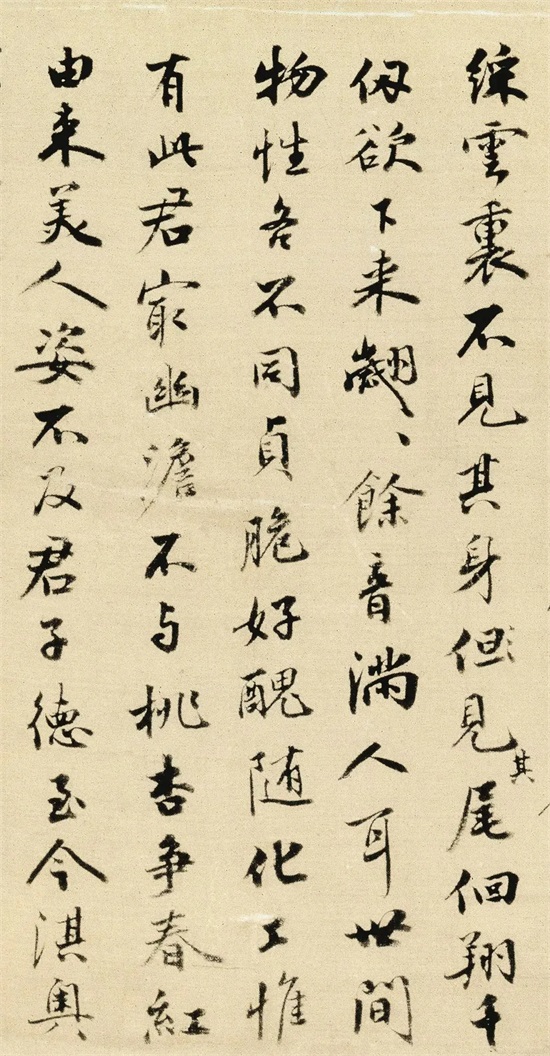 綵雲裏不見其身但見其尾佪翔千
仭欲下来翽〻餘音満人耳世間
物性各不同貞脆好醜随化工惟
有此君寂幽澹不与桃杏争春紅
由来美人姿不及君子徳至今淇奥